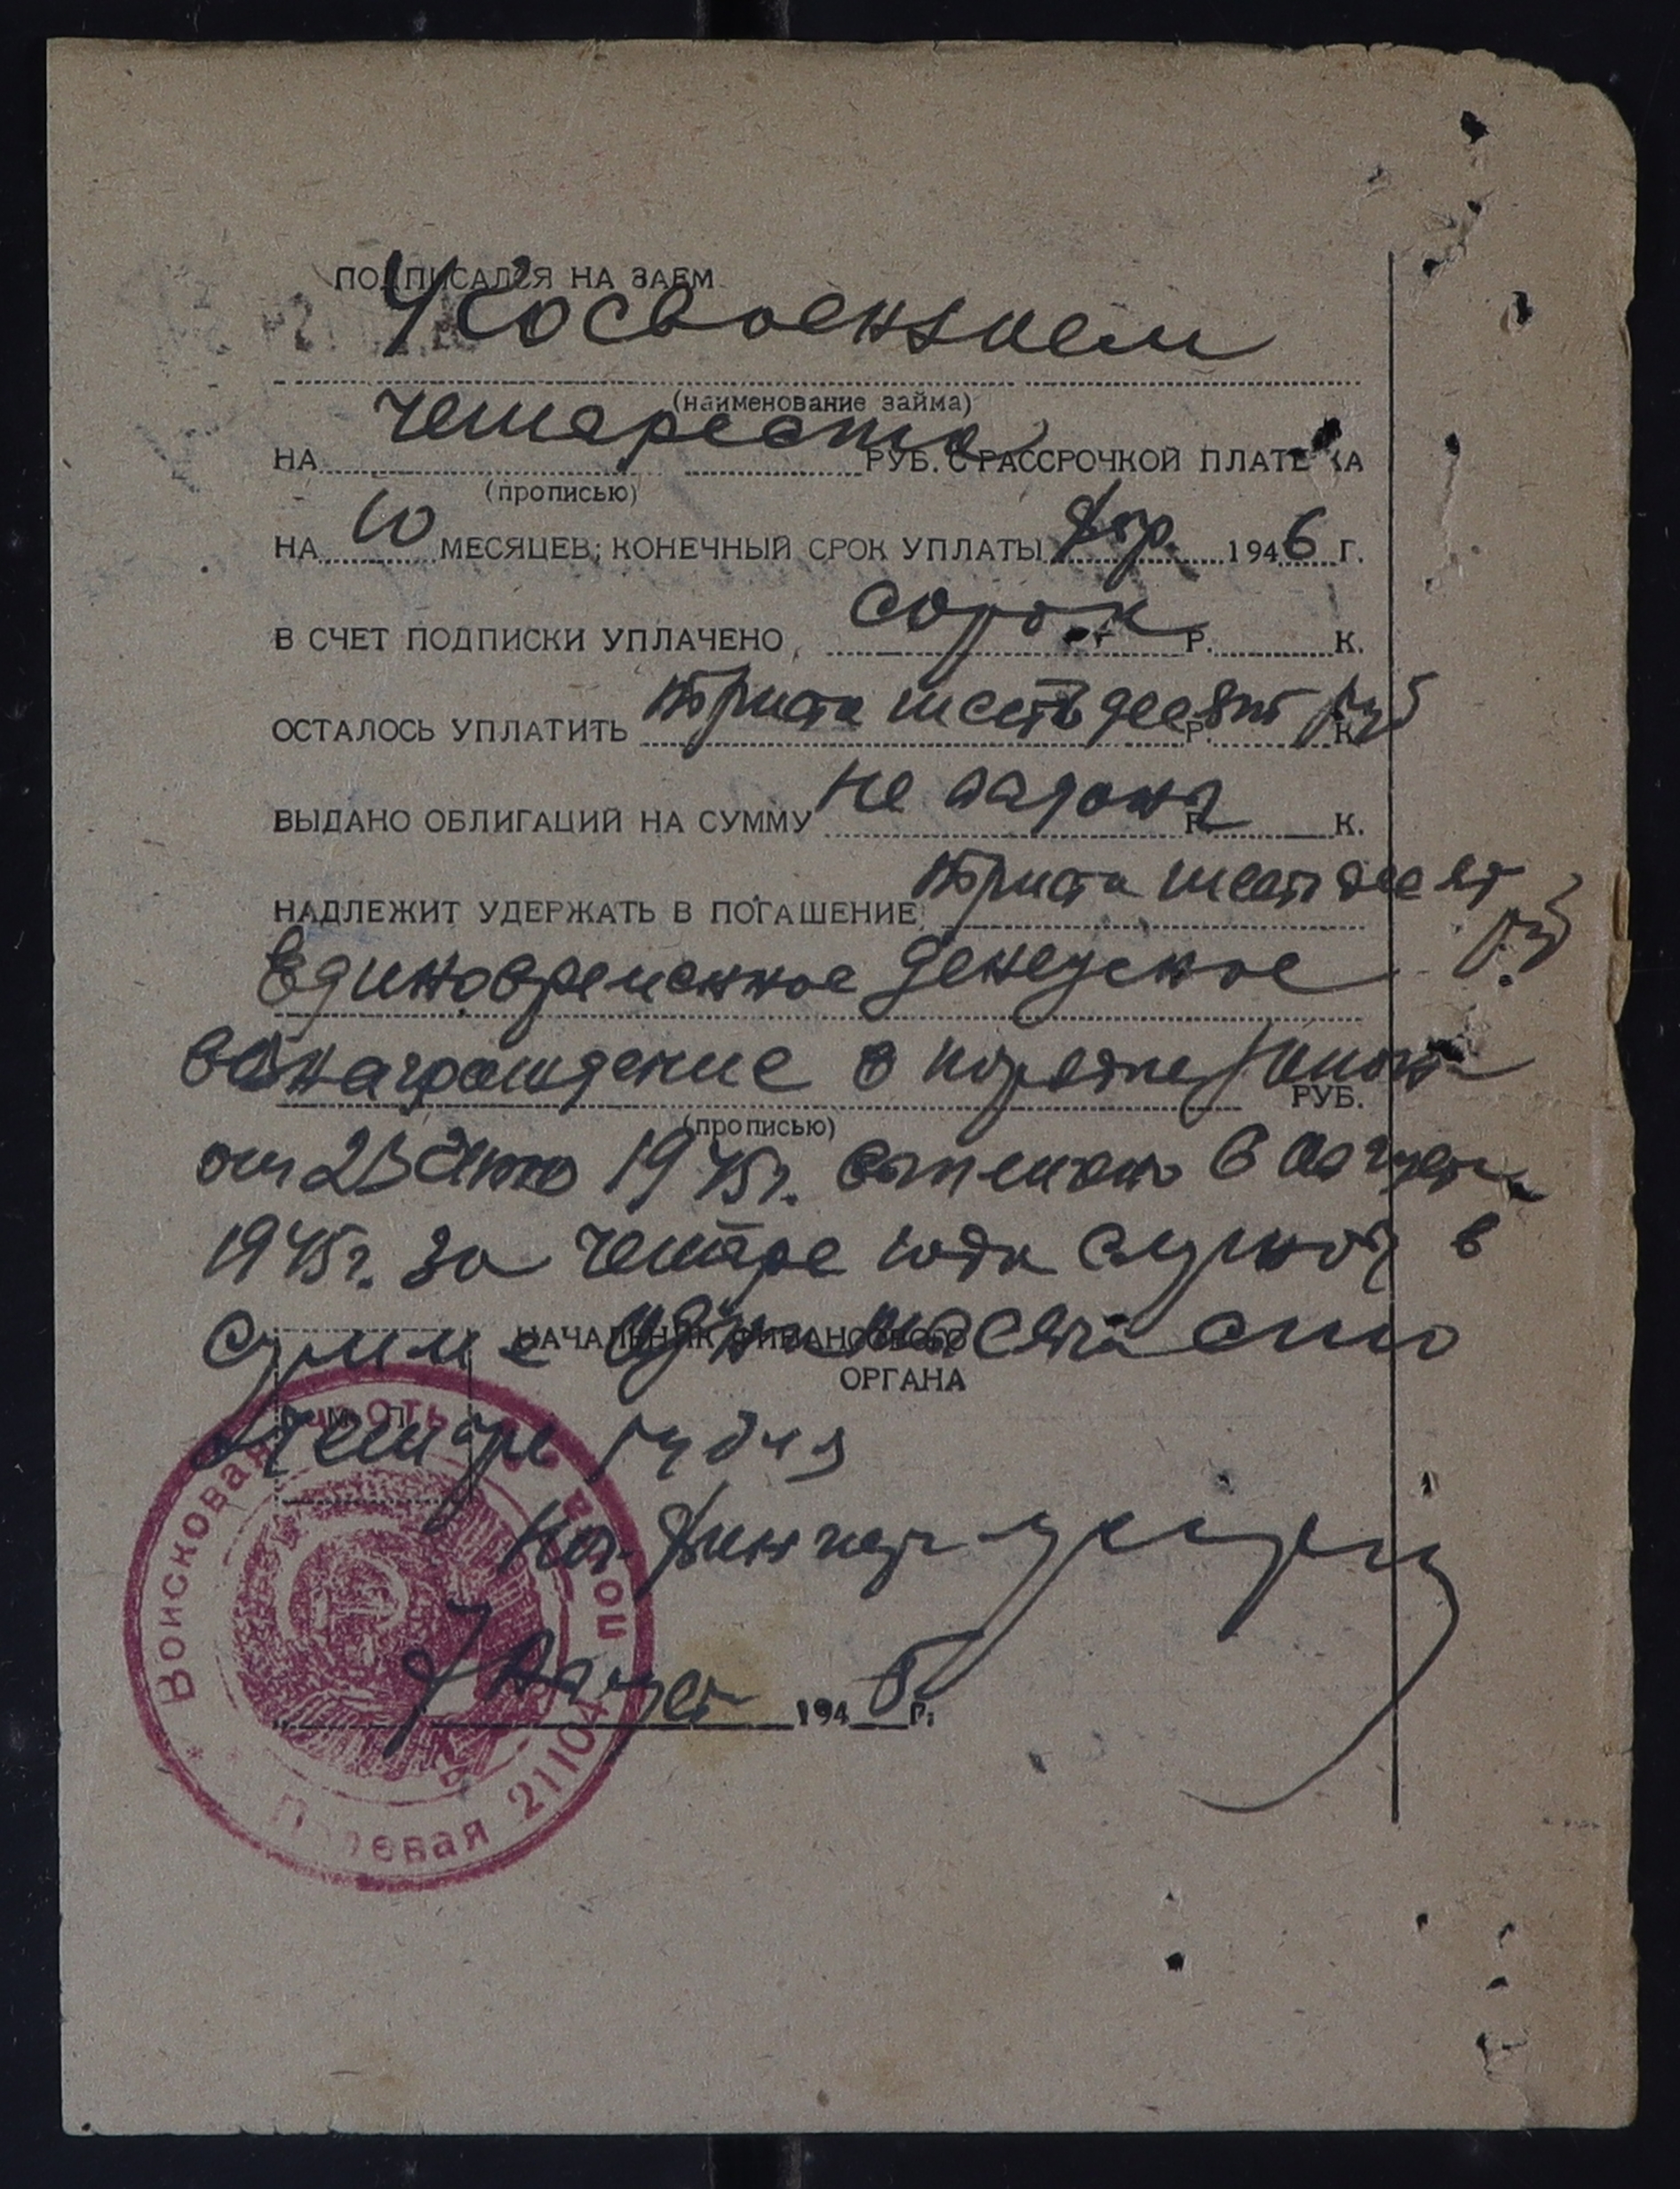 ПОДПИСАЛСЯ НА ЗАЕМ
4 Госвоензаем
(наименование займа)
НА четыреста РУБ. С РАССРОЧКОЙ ПЛАТЕЖА
(прописью)
НА 10 МЕСЯЦЕВ; КОНЕЧНЫЙ СРОК УПЛАТЫ фвр. 1946 Г.
В СЧЕТ ПОДПИСКИ УПЛАЧЕНО сорок Р. К.
ОСТАЛОСЬ УПЛАТИТЬ триста шестьдесят руб Р. К.
ВЫДАНО ОБЛИГАЦИЙ НА СУММУ не выданы Р. К.
НАДЛЕЖИТ УДЕРЖАТЬ В ПОГАШЕНИЕ триста шестьдесят руб
Единовременное денежное
вознаграждение в порядке закона
РУБ.
(прописью)
от 23 июня 1945г. в августе
1945г. за четыре года службы в
сумме одна тысяча сто
НАЧАЛЬНИК ФИНАНСОВОГО
ОРГАНА
М. П.
четыре рубля
Нач. фин части
7 Август 1945 г.
Войсковая часть Полевая почта 21104